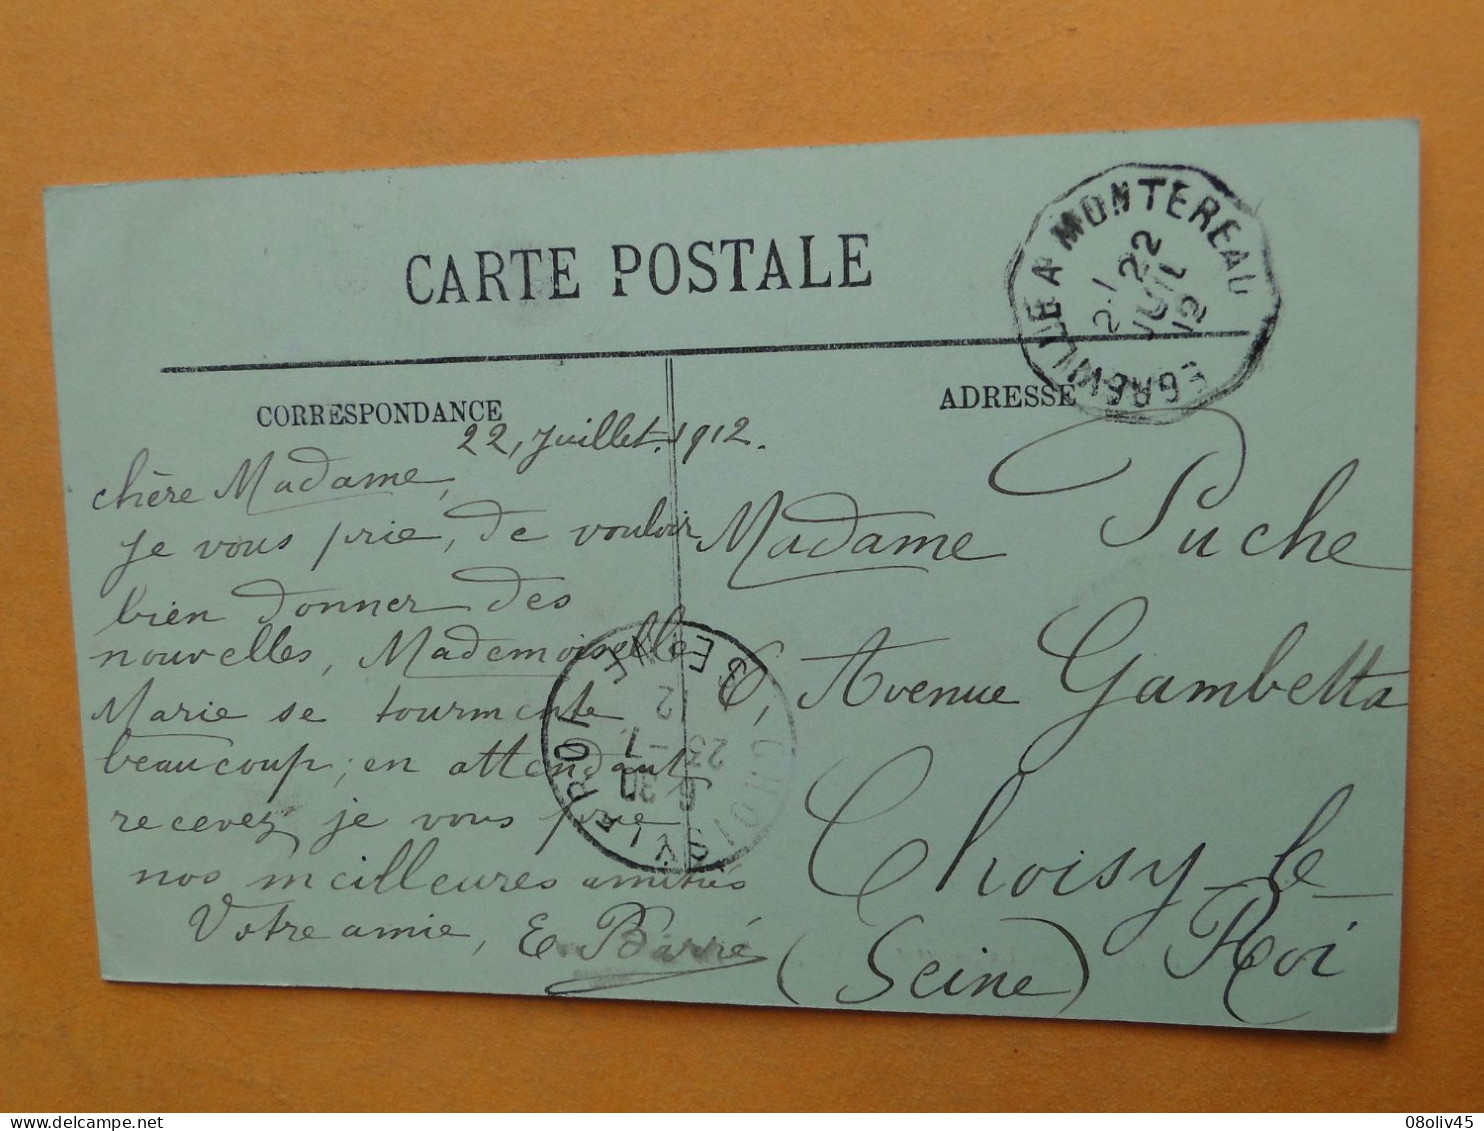 CARTE POSTALE
EGREVILLE A MONTEREAU
2.1
22
JUIL
12
CORRESPONDANCE
ADRESSE
22, Juillet. 1912.
chère Madame,
je vous prie, de vouloir
bien donner des
nouvelles, Mademoiselle
Marie se tourmente
beaucoup; en attendant
recevez je vous prie
nos meilleures amitiés
Votre amie, E Barré
Madame Puche
6, Avenue Gambetta
Choisy-le-
Roi
(Seine)
CHOISY LE ROI
SEINE
6 30
23 -7
12
08oliv45